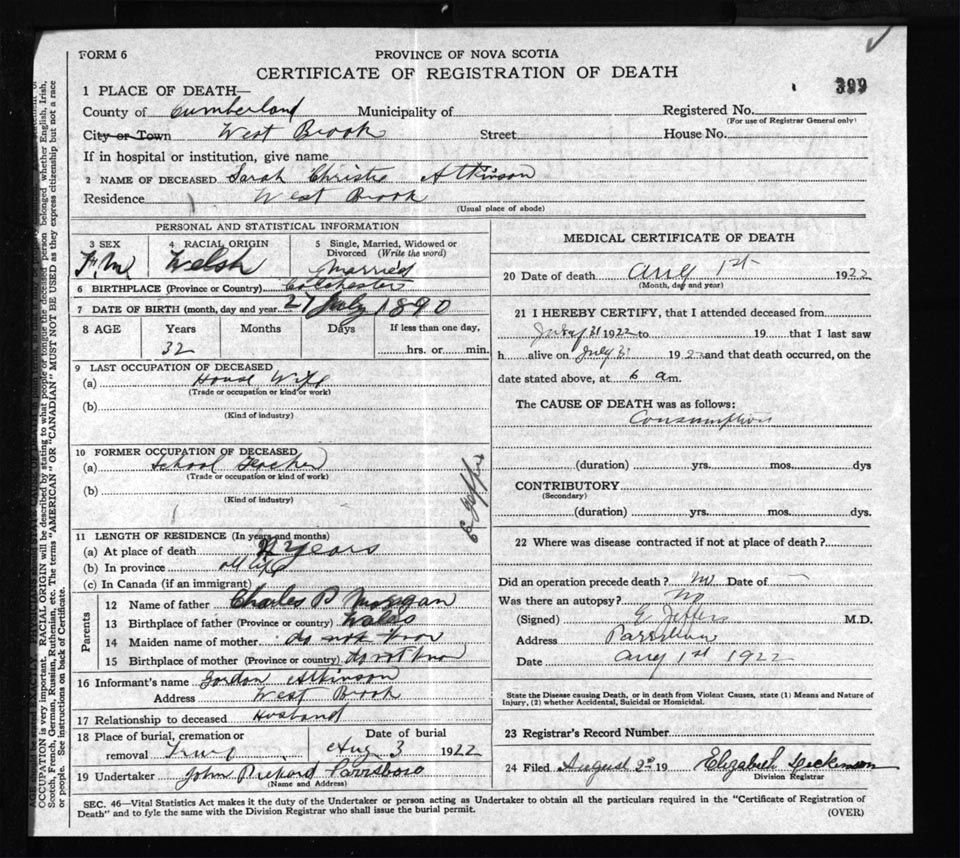 FORM 6
PROVINCE OF NOVA SCOTIA
CERTIFICATE OF REGISTRATION OF DEATH
399
1 PLACE OF DEATH—
County of Cumberland Municipality of Registered No.
(For use of Registrar General only)
City or Town West Brook Street House No.
If in hospital or institution, give name
2 NAME OF DECEASED Sarah Christie Atkinson
Residence West Brook
(Usual place of abode)
PERSONAL AND STATISTICAL INFORMATION
3 SEX 4 RACIAL ORIGIN 5 Single, Married, Widowed or Divorced (Write the word)
Welsh Married
6 BIRTHPLACE (Province or Country) Colchester
7 DATE OF BIRTH (month, day and year) 27 July 1890
8 AGE Years Months Days If less than one day,
32 hrs. or min.
9 LAST OCCUPATION OF DECEASED
(a) House Wife
(Trade or occupation or kind or work)
(b)
(Kind of industry)
10 FORMER OCCUPATION OF DECEASED
(a) School Teacher
(Trade or occupation or kind of work)
(b)
(Kind of industry)
11 LENGTH OF RESIDENCE (In years and months)
(a) At place of death Years
(b) In province all life
(c) In Canada (if an immigrant)
Parents
12 Name of father Charles D Morgan
13 Birthplace of father (Province or country) Wales
14 Maiden name of mother do not know
15 Birthplace of mother (Province or country) do not know
16 Informant's name Gordon Atkinson
Address West Brook
17 Relationship to deceased Husband
18 Place of burial, cremation or Date of burial
removal Aug 3 1922
19 Undertaker John Parrsboro
(Name and Address)
MEDICAL CERTIFICATE OF DEATH
20 Date of death Aug 1st 1922
(Month, day and year)
21 I HEREBY CERTIFY, that I attended deceased from
31 1922 to 19 that I last saw
h alive on July 31 192 and that death occurred, on the
date stated above, at 6 a m.
The CAUSE OF DEATH was as follows:
Consumption
(duration) yrs. mos. dys
CONTRIBUTORY
(Secondary)
(duration) yrs. mos. dys.
22 Where was disease contracted if not at place of death?
Did an operation precede death? no Date of —
Was there an autopsy? no
(Signed) E Jeffers M.D.
Address Parrsboro
Date Aug 1st 1922
State the Disease causing Death, or in death from Violent Causes, state (1) Means and Nature of
Injury, (2) whether Accidental, Suicidal or Homicidal.
23 Registrar's Record Number
24 Filed August 2nd 19 Elizabeth Dickinson
Division Registrar
SEC. 46—Vital Statistics Act makes it the duty of the Undertaker or person acting as Undertaker to obtain all the particulars required in the "Certificate of Registration of
Death" and to fyle the same with the Division Registrar who shall issue the burial permit.
(OVER)
OCCUPATION is very important. RACIAL ORIGIN will be described by stating to what people or tongue the deceased person belonged whether English, Irish,
Scotch, French, German, Russian, Ruthenian, etc. The terms "AMERICAN" OR "CANADIAN" MUST NOT BE USED as they express citizenship but not a race
or people. See instructions on back of Certificate.